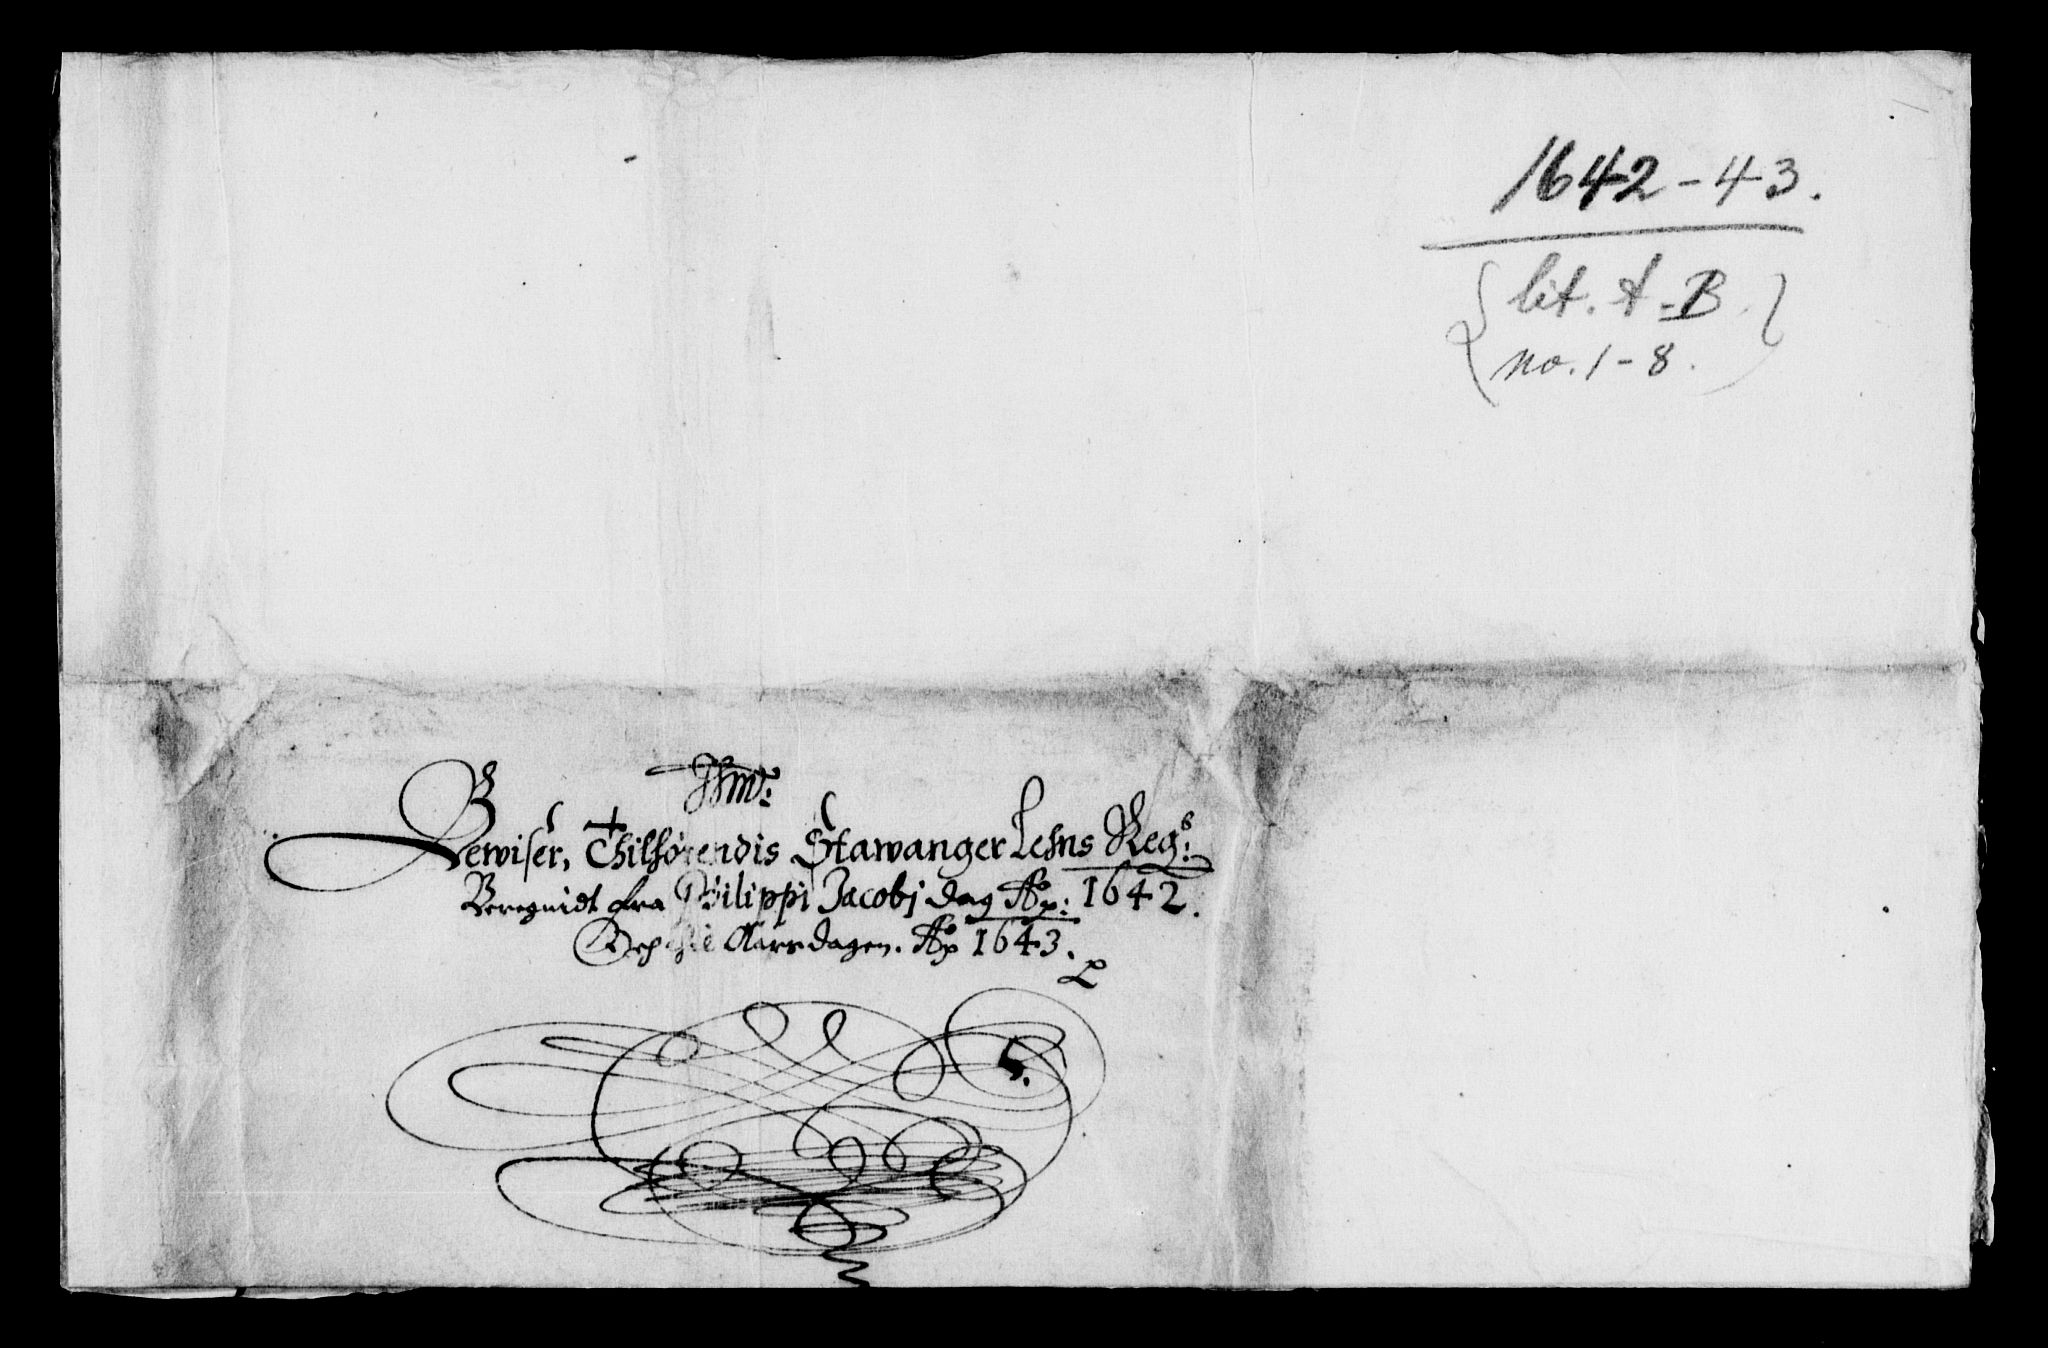 1642-43.
lit. A-B.
no. 1-8.
Bewiser, Thilhørendis Stawanger Lehns Regs:
Beregnidt fra Philippi Jacobj dag Ao: 1642.
Och thil Aarsdagen. Ao 1643.